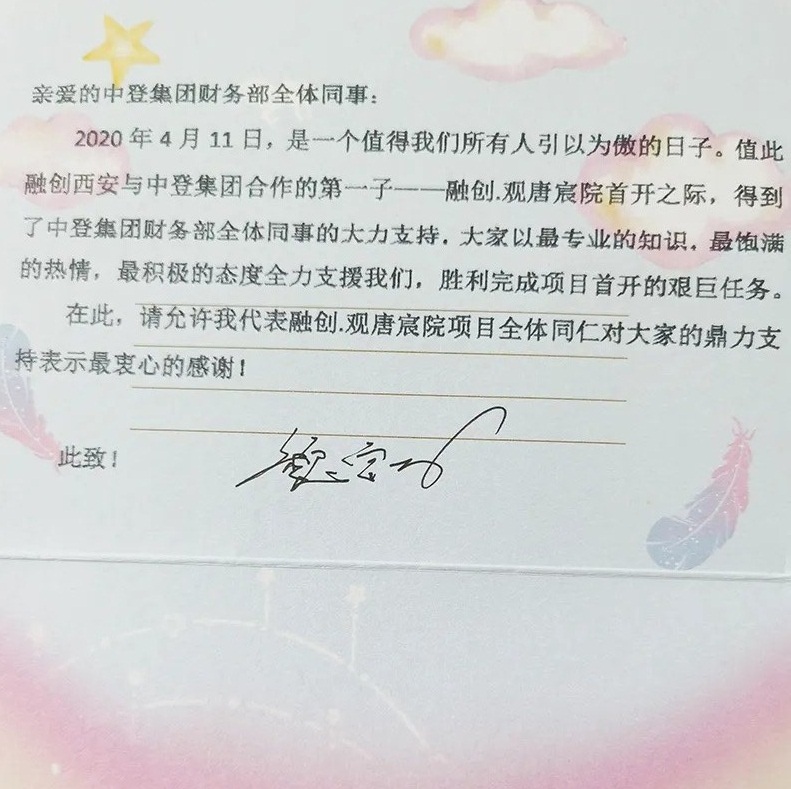 亲爱的中登集团财务部全体同事：
2020 年 4 月 11 日，是一个值得我们所有人引以为傲的日子。值此
融创西安与中登集团合作的第一子——融创.观唐宸院首开之际，得到
了中登集团财务部全体同事的大力支持，大家以最专业的知识，最饱满
的热情，最积极的态度全力支援我们，胜利完成项目首开的艰巨任务。
在此，请允许我代表融创.观唐宸院项目全体同仁对大家的鼎力支
持表示最衷心的感谢！
此致！